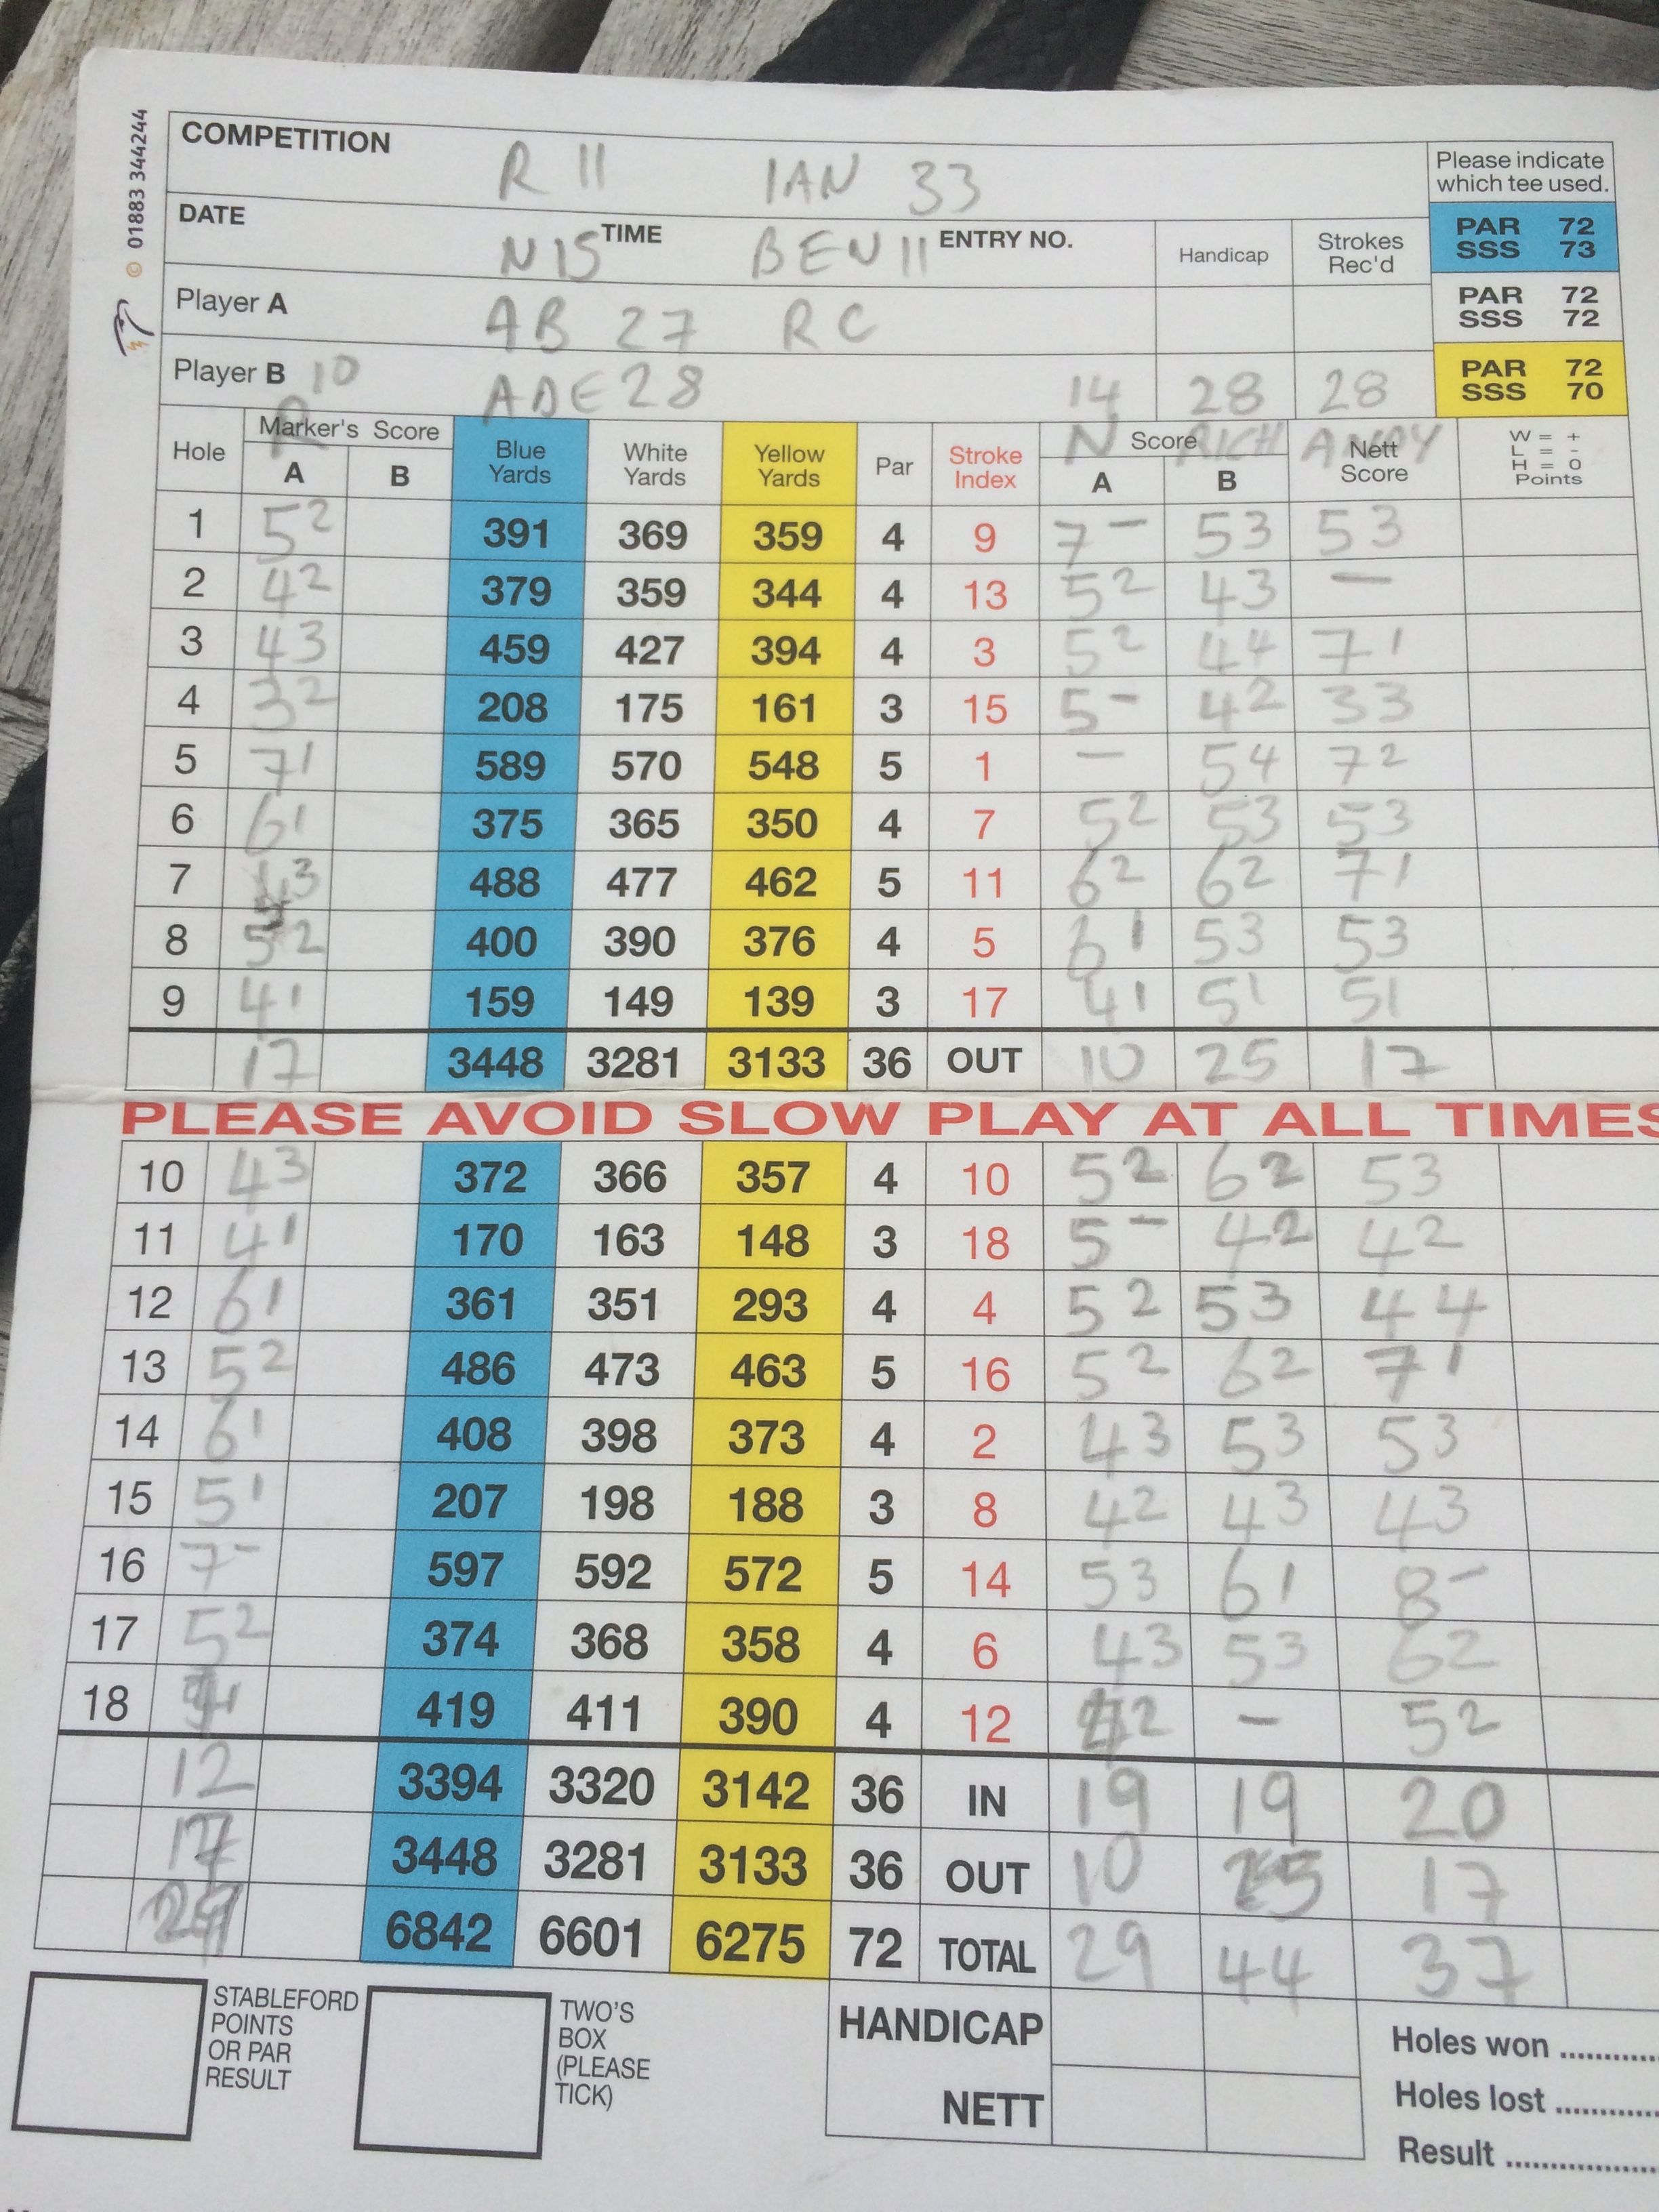 01883 344244
COMPETITION R 11 IAN 33
Please indicate which tee used.
DATE N 15 TIME BEN 11 ENTRY NO. Handicap Strokes Rec'd
PAR 72 SSS 73
Player A AB 27 RC
PAR 72 SSS 72
Player B 10 ADE 28 14 28 28
PAR 72 SSS 70
R N RICH ANDY
Hole Marker's Score A B Blue Yards White Yards Yellow Yards Par Stroke Index Score A B Nett Score W = + L = - H = 0 Points
1 5 2 391 369 359 4 9 7 - 5 3 5 3
2 4 2 379 359 344 4 13 5 2 4 3 -
3 4 3 459 427 394 4 3 5 2 4 4 7 1
4 3 2 208 175 161 3 15 5 - 4 2 3 3
5 7 1 589 570 548 5 1 - 5 4 7 2
6 6 1 375 365 350 4 7 5 2 5 3 5 3
7 3 488 477 462 5 11 6 2 6 2 7 1
8 5 2 400 390 376 4 5 6 1 5 3 5 3
9 4 1 159 149 139 3 17 4 1 5 1 5 1
17 3448 3281 3133 36 OUT 10 25 17
PLEASE AVOID SLOW PLAY AT ALL TIMES
10 4 3 372 366 357 4 10 5 2 6 2 5 3
11 4 1 170 163 148 3 18 5 - 4 2 4 2
12 6 1 361 351 293 4 4 5 2 5 3 4 4
13 5 2 486 473 463 5 16 5 2 6 2 7 1
14 6 1 408 398 373 4 2 4 3 5 3 5 3
15 5 1 207 198 188 3 8 4 2 4 3 4 3
16 7 - 597 592 572 5 14 5 3 6 1 8 -
17 5 2 374 368 358 4 6 4 3 5 3 6 2
18 419 411 390 4 12 2 - 5 2
12 3394 3320 3142 36 IN 19 19 20
17 3448 3281 3133 36 OUT 10 25 17
29 6842 6601 6275 72 TOTAL 29 44 37
STABLEFORD POINTS OR PAR RESULT
TWO'S BOX (PLEASE TICK)
HANDICAP
NETT
Holes won ..........
Holes lost ..........
Result ................